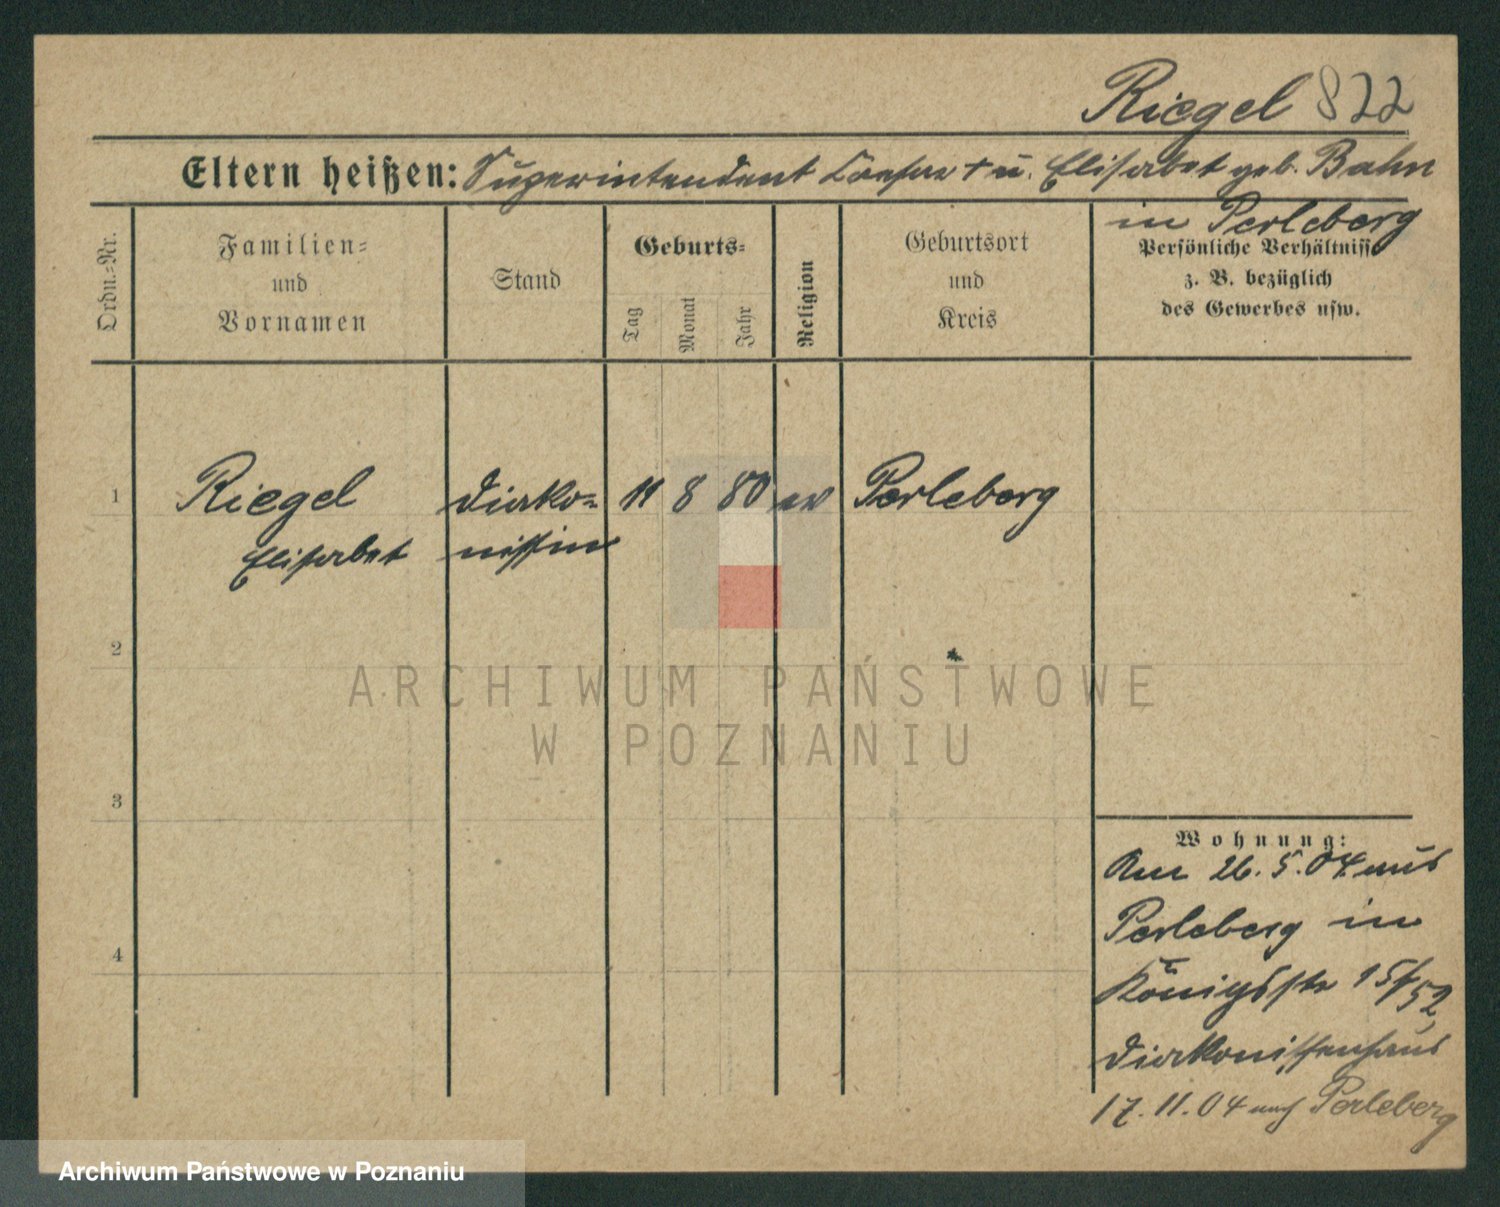 Riegel 822
Eltern heißen: Superintendent † u. Elisabet geb. Bahn
in Perleberg
Ordn.-Nr.
Familien-
und
Vornamen
Stand
Geburts-
Tag
Monat
Jahr
Religion
Geburtsort
und
Kreis
Persönliche Verhältnisse
z. B. bezüglich
des Gewerbes usw.
1
Riegel
Elisabet
Diako-
nissin
11 8 80 ev Perleberg
2
3
4
ARCHIWUM PAŃSTWOWE
W POZNANIU
Wohnung:
Am 26.5.04 aus
Perleberg in
Königsstr 15/52
Diakonissenhaus
17.11.04 nach Perleberg
Archiwum Państwowe w Poznaniu